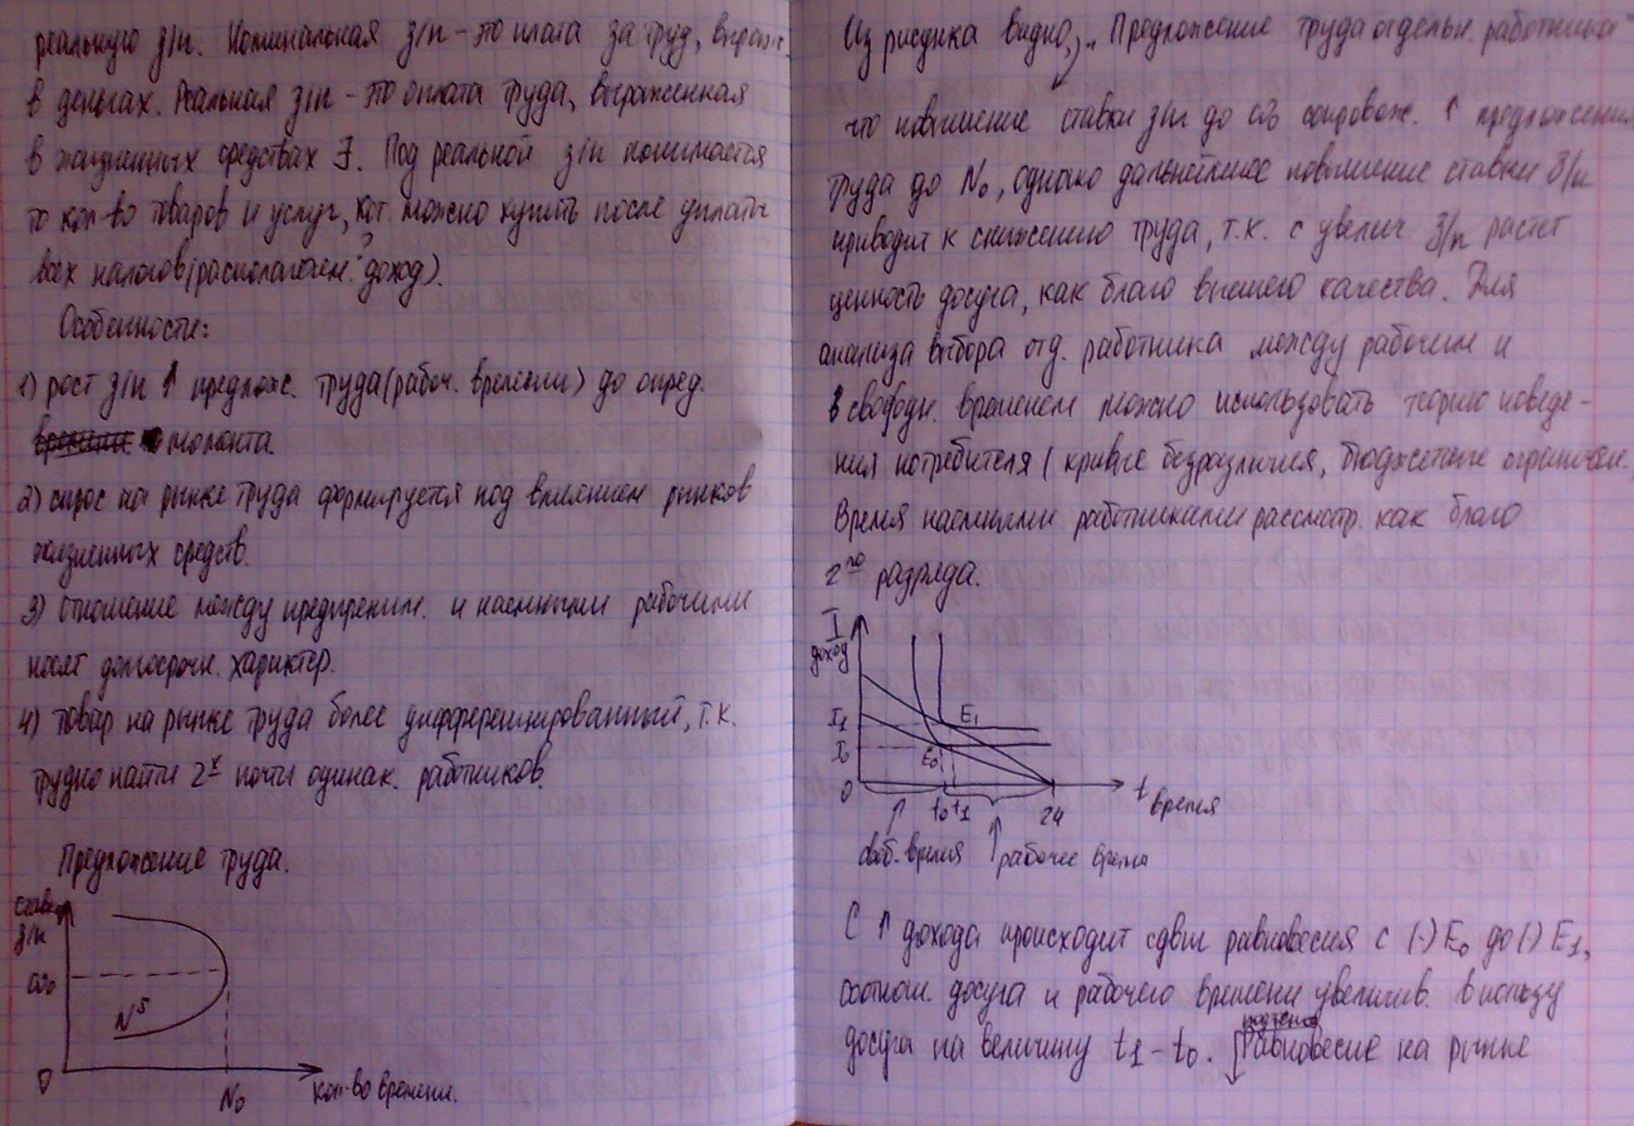 реальную з/п. Номинальная з/п – это плата за труд, выраж.
в деньгах. Реальная з/п – это оплата труда, выраженная
в жизненных средствах ∃. Под реальной з/п понимается
то кол-во товаров и услуг, кот. можно купить после уплаты
всех налогов (располагаем. доход).
Особенности:
1) рост з/п ↑ предлож. труда (рабоч. времени) до опред.
момента
2) спрос на рынке труда формируется под влиянием рынков
жизненных средств.
3) отношение между предприним. и наемными рабочими
носят долгосрочн. характер.
4) товар на рынке труда более дифференцированный, т.к.
трудно найти 2х почти одинак. работников.
Предложение труда.
ставка
з/п
ω₀
Nˢ
0
N₀
кол-во времени.
Из рисунка видно, „Предложение труда отдельн. работника"
что повышение ставки з/п до ω₀ сопровож. ↑ предложения
труда до N₀, однако дальнейшее повышение ставки з/п
приводит к снижению труда, т.к. с увелич. з/п растет
ценность досуга, как благо высшего качества. Для
анализа выбора отд. работника между рабочим и
свободн. временем можно использовать теорию поведе-
ния потребителя (кривые безразличия, бюджетные ограничен.
Время наемными работниками рассмотр. как благо
2го разряда.
I
доход
I₁
I₀
E₁
E₀
0
t₀ t₁
24
t время
своб. время
рабочее время
С ↑ дохода происходит сдвиг равновесия с (·) E₀ до (·) E₁,
соотнош. досуга и рабочего времени увеличив. в пользу
досуга на величину t₁ – t₀. Равновесие на рынке